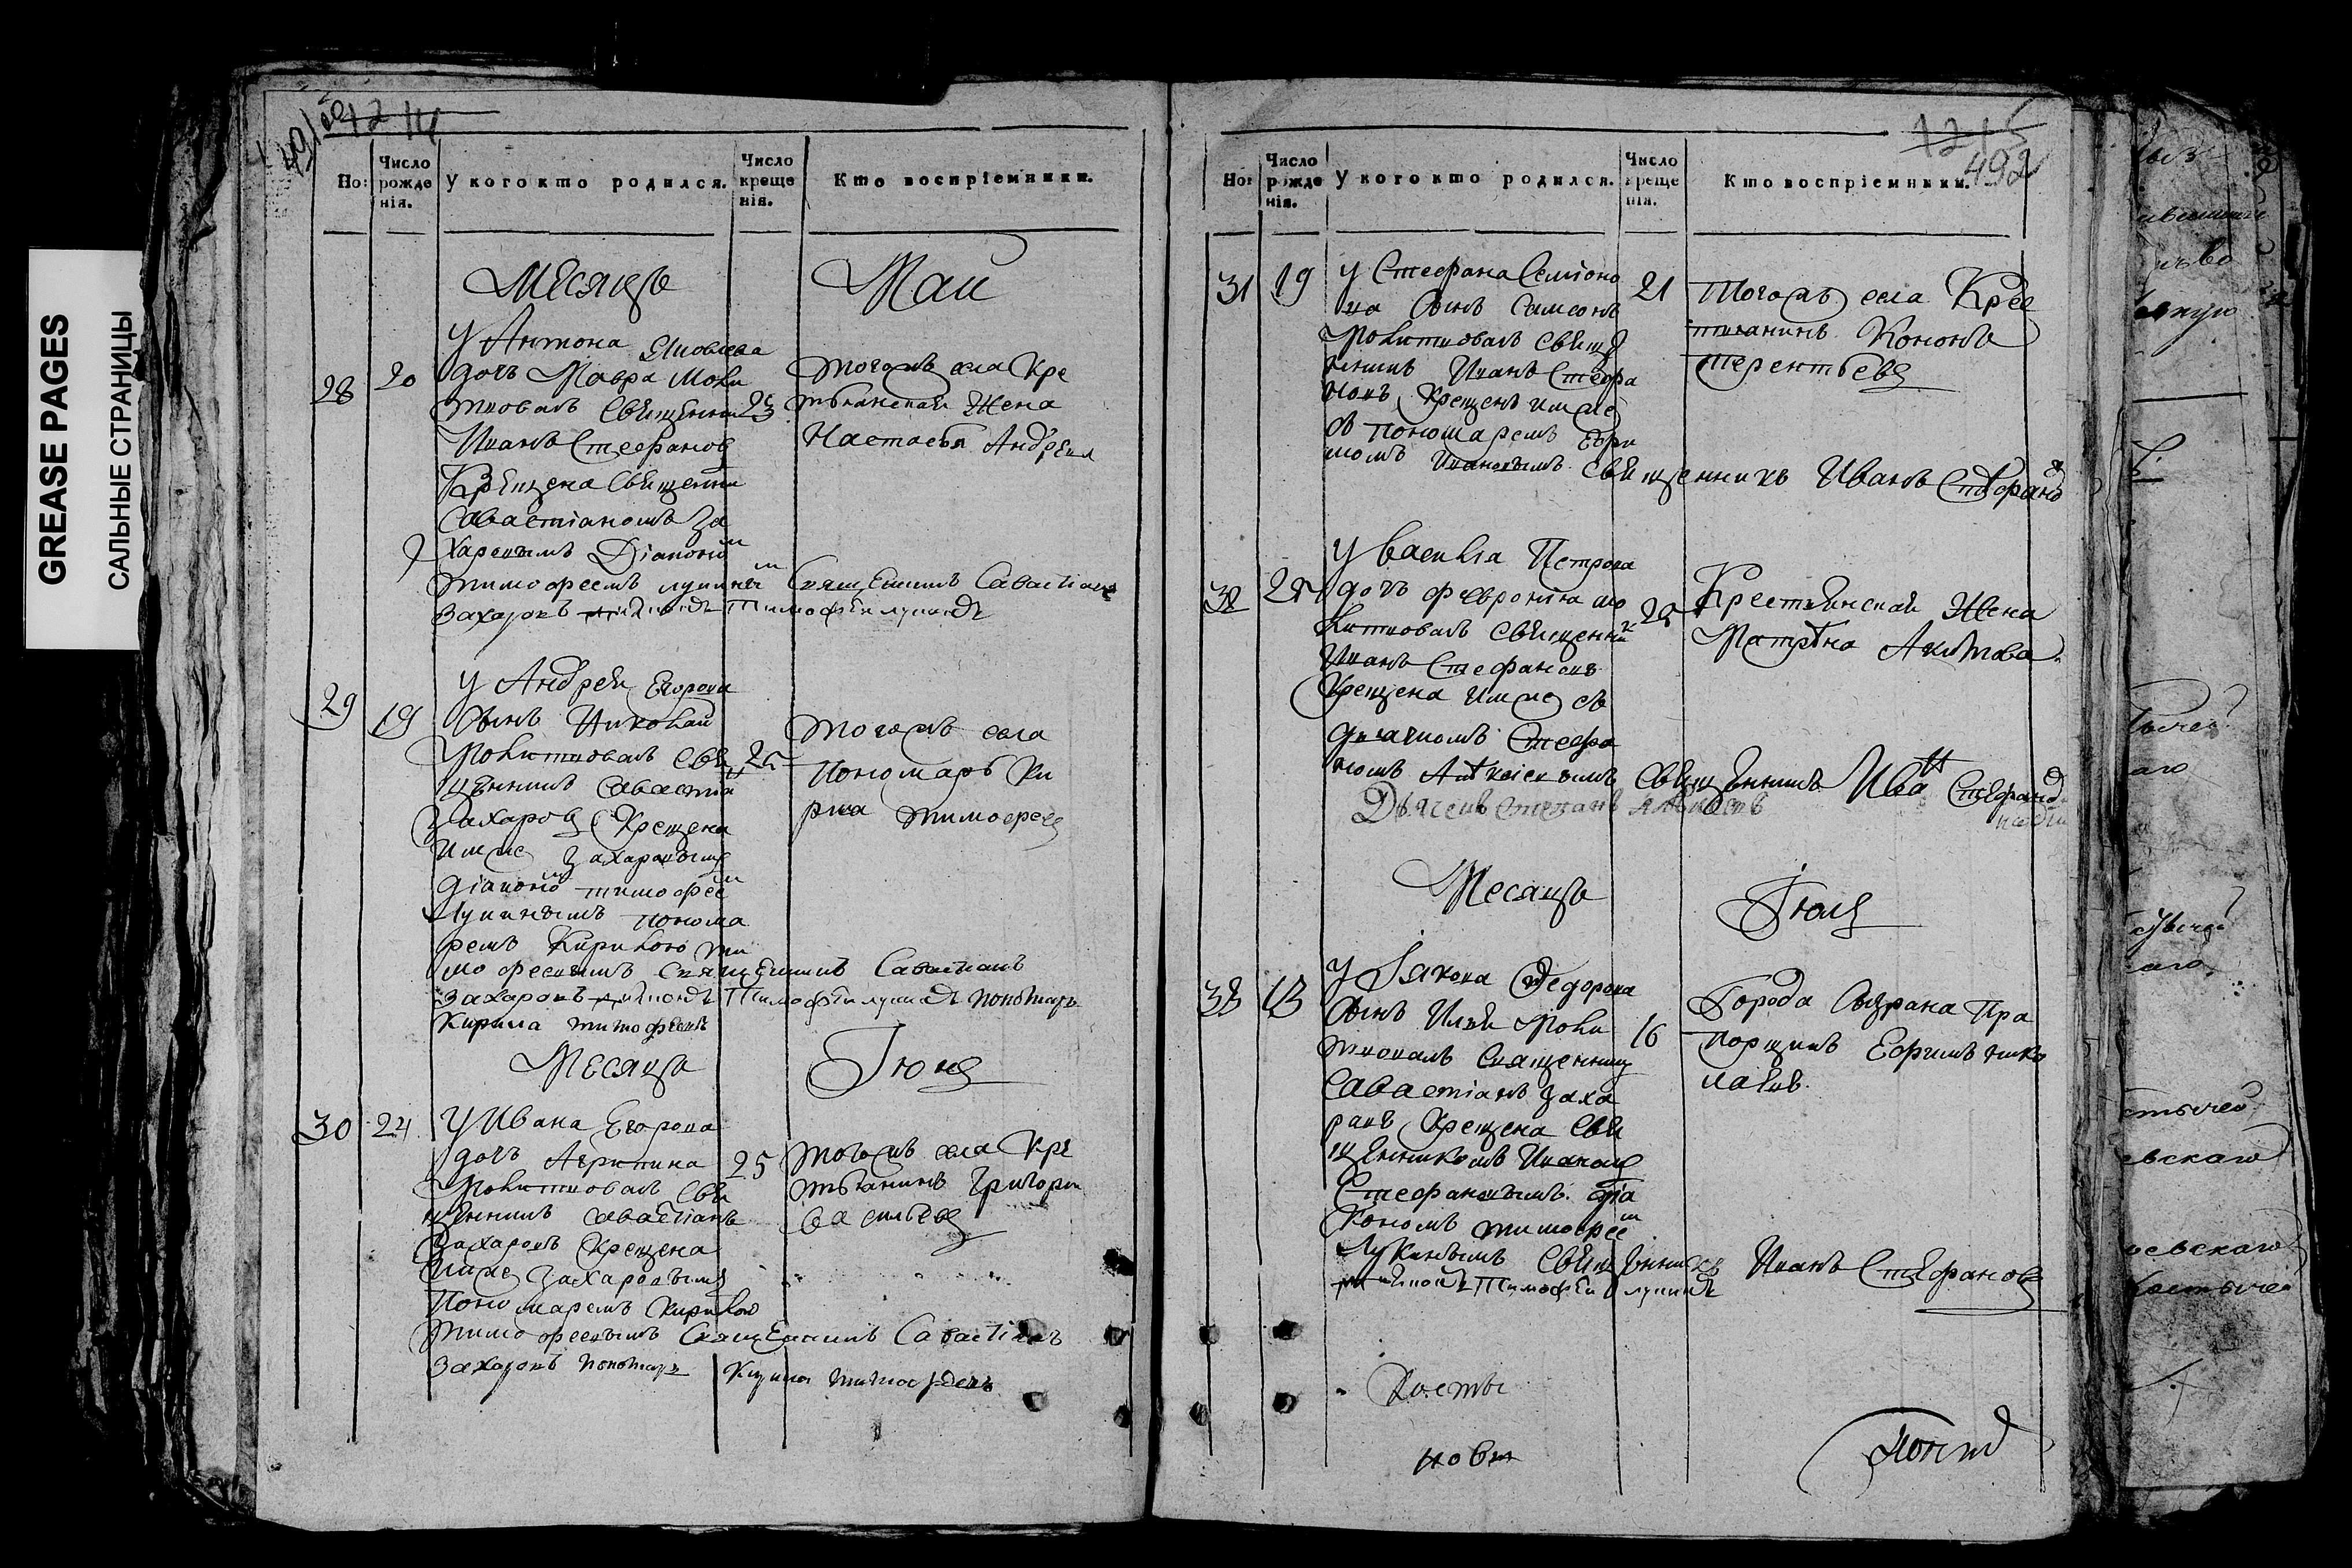 GREASE PAGES
САЛЬНЫЕ СТРАНИЦЫ
491
1214
Но:
Число рожде нія.
У кого кто родился.
Число креще нія.
Кто воспріемники.
Месяцъ Маи
28 20
У Антона Яковлева
дочъ Мавра моли
твовалъ Священни 23
Иванъ Стефановъ
Крещена Священни
Савастіаномъ За
харовымъ Діакономъ
тимофеемъ лукинымъ
тогожъ села Кре
стьянская Жена
Настасья Андреева
Священникъ Савастіанъ
Захаровъ діаконъ Тимофеи лукинъ
29 19
У Андрея Егорова
сынъ Николаи
молитвовалъ Свя 25
щенникъ Савастіа
Захаровъ Крещена
имже Захаровымъ
діакономъ тимофеемъ
Лукинымъ понома
ремъ Кириломъ ти
мофеевымъ Священникъ Савастіанъ
Захаровъ діаконъ Тимофеи лукинъ пономарь
Кирила тимофеевъ
тогожъ села
пономарь Ки
рила тимофеевъ
Месяцъ Іюнь
30 24
У Ивана Егорова
дочъ Агрипина 25
молитвовалъ Свя
щенникъ Савастіанъ
Захаровъ Крещена
имже Захаровымъ
пономаремъ Кириломъ
тимофеевымъ Священникъ Савастіанъ
Захаровъ пономарь Кирила тимофеевъ
тогожъ села Кре
стьянинъ Григории
Васильевъ
1215
492
Но:
Число рожде нія.
У кого кто родился.
Число креще нія.
Кто воспріемники.
31 19
У Стефана Семіоно
ва сынъ Самсонъ 21
молитвовалъ Священ
никъ Иванъ Стефа
новъ Крещенъ имже
съ пономаремъ Ефри
момъ Ивановымъ Священникъ Иванъ Стефановъ
тогожъ села Крес
тианинъ Кононъ
терентьевъ
32 25
У Василья Петрова
дочъ феврониа мо
литвовалъ Священни 25
Иванъ Стефановъ
Крещена имже съ
дьячкомъ Стефа
номъ Алексіевымъ Священникъ Иван Стефановъ
Дьячекъ степанъ алексеевъ
Крестьянская Жена
Матрена
Месяцъ Іюль
33 13
У Іакова Федорова
сынъ Илья моли 16
твовалъ Священникъ
Савастіанъ Заха
ровъ Крещена Свя
щенникомъ Иваномъ
Стефановымъ діа
кономъ тимофеемъ
Лукинымъ Священникъ Иванъ Стефановъ
діаконъ Тимофеи лукинъ
Города Сызрана Пра
порщикъ Ефимъ нико
лаевъ